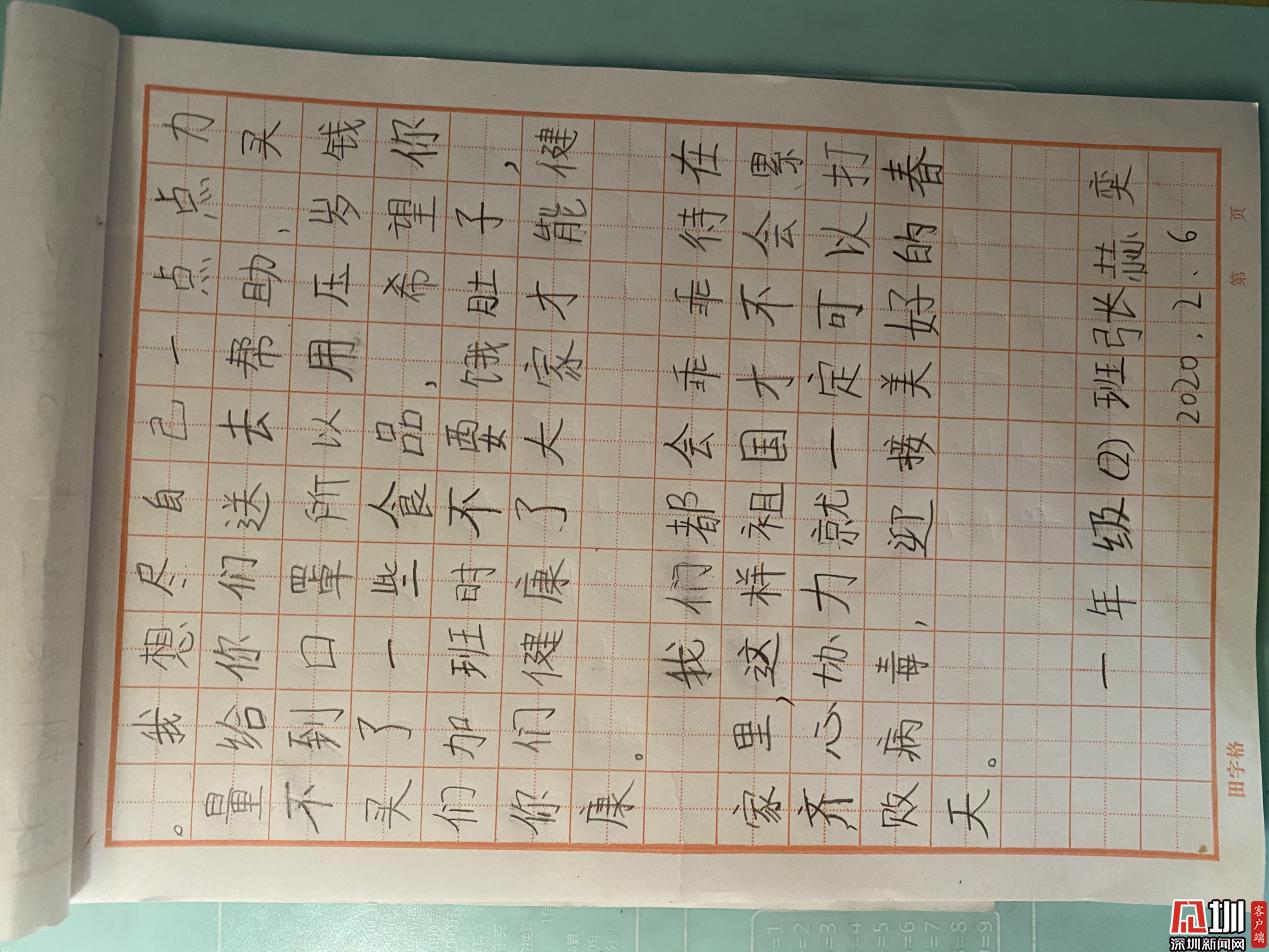 。我想尽自己一点点力
量给你们送去帮助,买
不到口罩所以用压岁钱
买了一些食品,希望你
们加班时不要饿肚子,
你们健康了大家才能健
康。
我们都会乖乖待在
家里,这样祖国才不会累、
齐心协力就一定可以打
败病毒,迎接美好的春
天。
一年级(2)班张赫奕
2020.2.6
田字格 第 页
圳
深圳新闻网
客户端